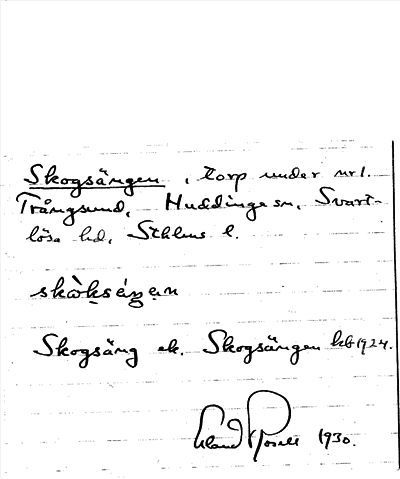 Skogsängen, torp under nr 1.
Trångsund, Huddinge sn, Svart-
lösa hd, Sthlms l.
skòksé̹ŋe̹n
Skogsäng ek. Skogsängen kb 1924.
1930.